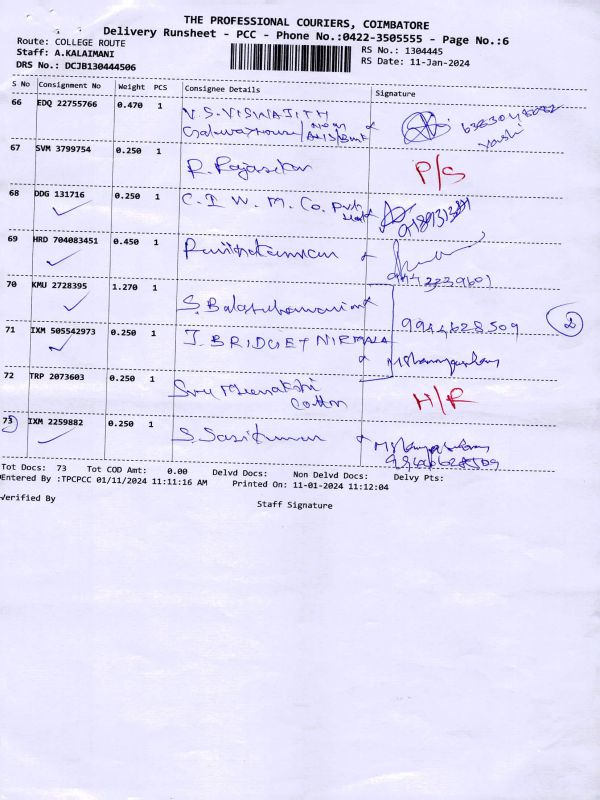 THE PROFESSIONAL COURIERS, COIMBATORE
Delivery Runsheet - PCC - Phone No.:0422-3505555 - Page No.:6
Route: COLLEGE ROUTE
Staff: A.KALAIMANI
RS No.: 1304445
DRS No.: DCJB130444506
RS Date: 11-Jan-2024
S No Consignment No Weight PCS Consignee Details Signature
66 EDQ 22755766 0.470 1 V.S. VISWAJITH
67 SVM 3799754 0.250 1 R. Rajasekar P/S
68 DDG 131716 0.250 1 C. I. W. M. Co.
69 HRD 704083451 0.450 1
70 KMU 2728395 1.270 1 S. Balasubamaniam
9944628509 2
71 IXM 505542973 0.250 1 J. BRIDGET NIRMALA
72 TRP 2073603 0.250 1 Sree Meenakshi
Cotton H/R
73 IXM 2259882 0.250 1 S. Sasikumar
Tot Docs: 73 Tot COD Amt: 0.00 Delvd Docs: Non Delvd Docs: Delvy Pts:
Entered By :TPCPCC 01/11/2024 11:11:16 AM Printed On: 11-01-2024 11:12:04
Verified By
Staff Signature